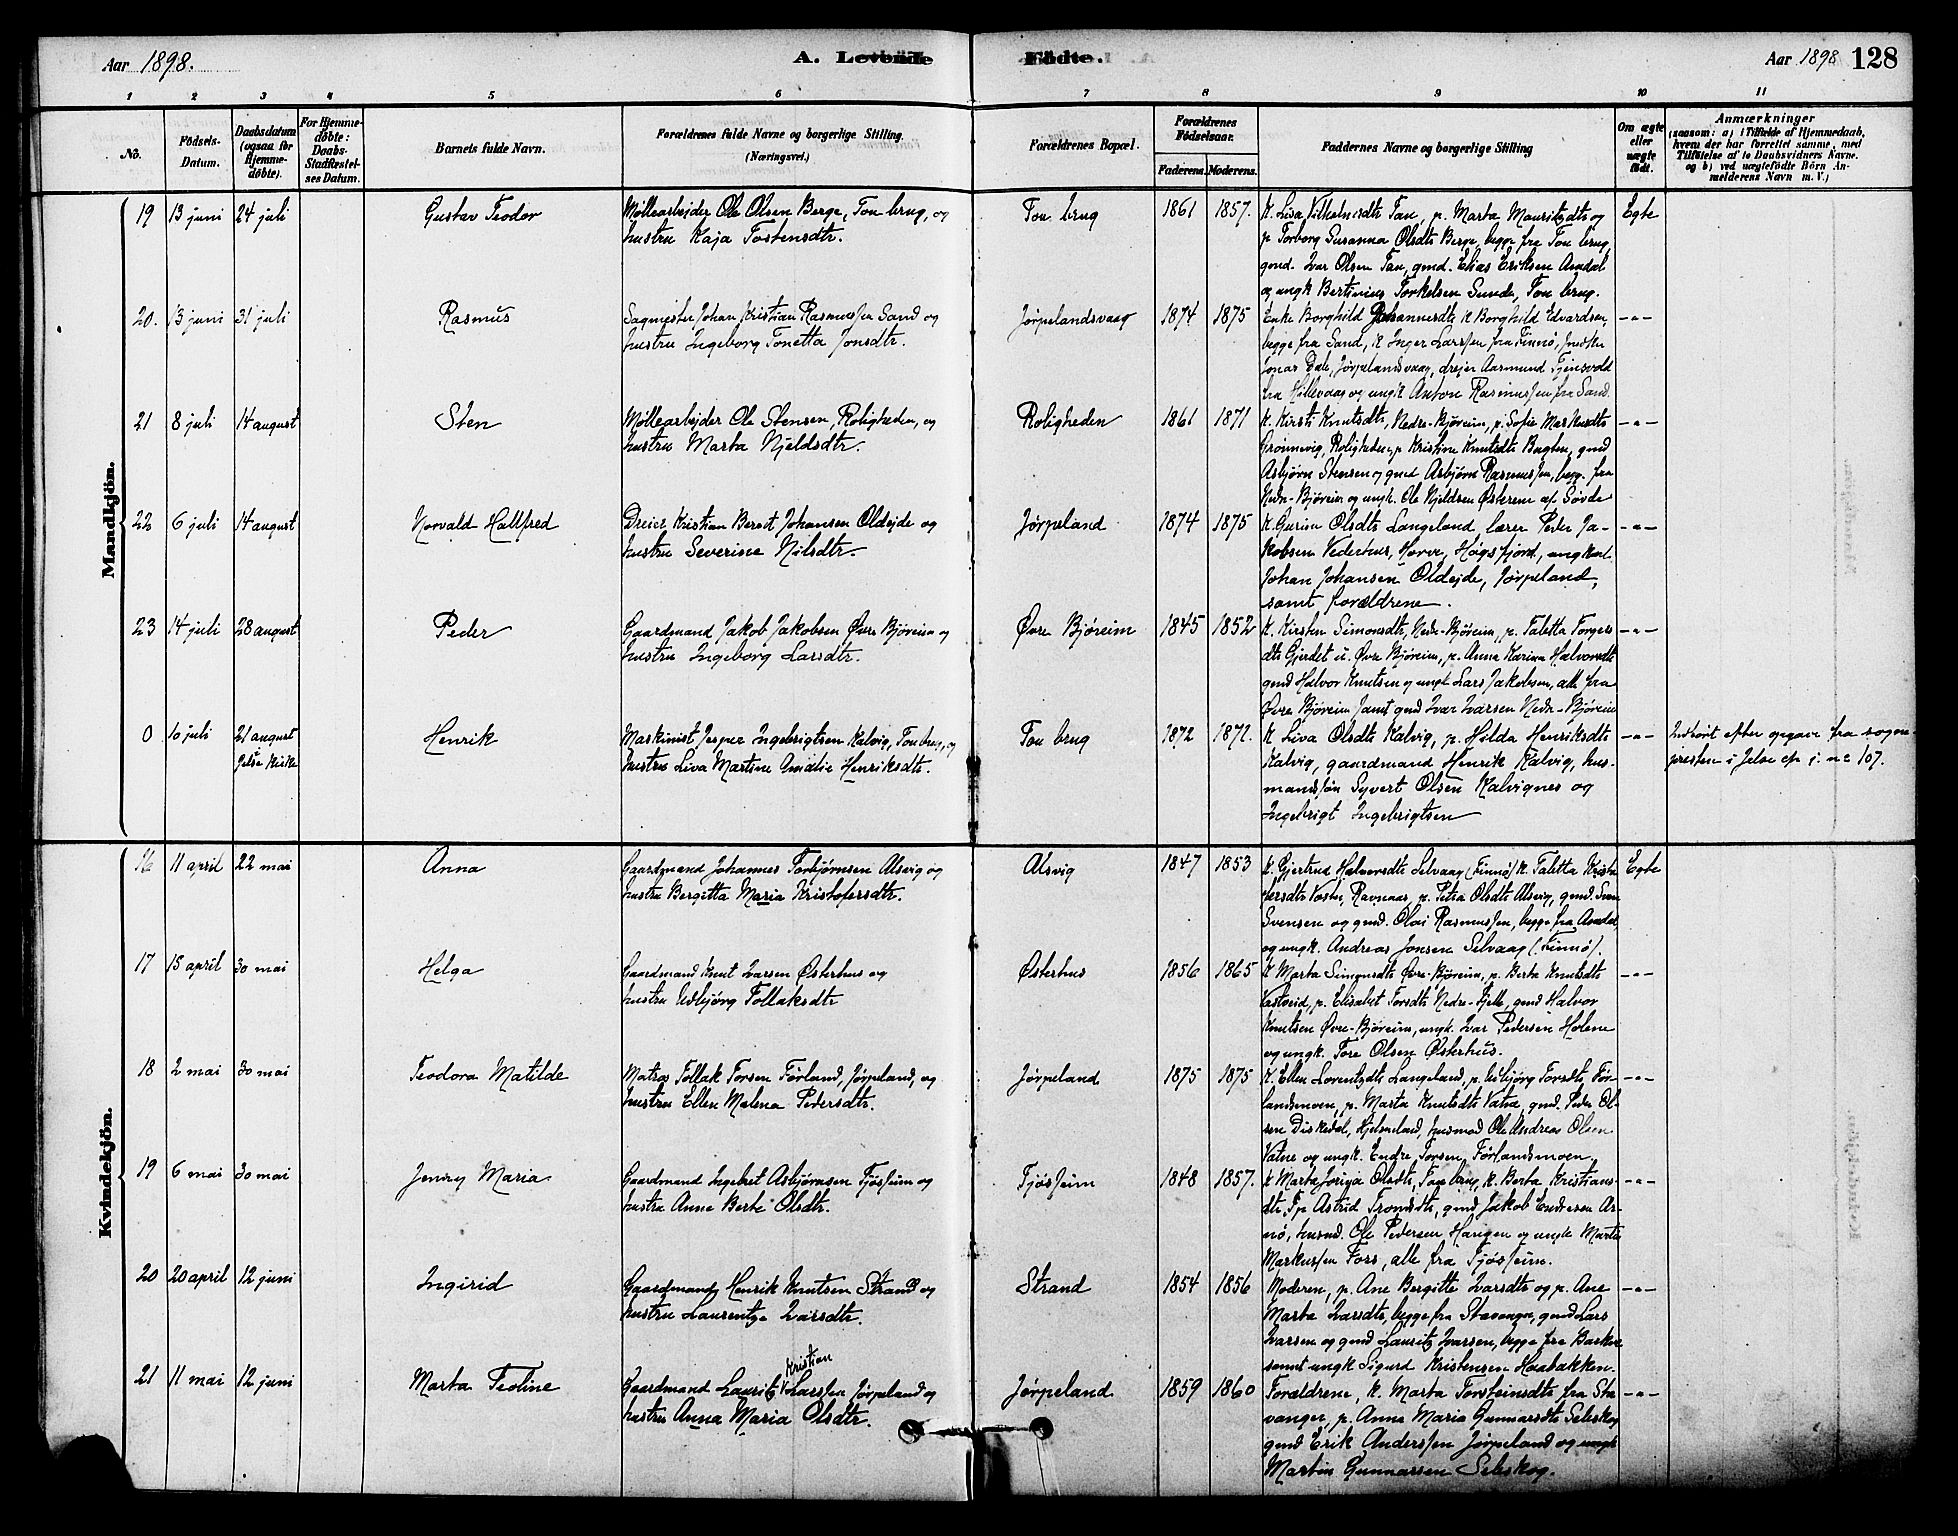 Aar 1898.
A. Levende
Födte.
Aar 1898
128
1 2 3 4 5 6 7 8 9 10 11
No.
Födsels-Datum.
Daabsdatum (ogsaa for Hjemme-döbte).
For Hjemme-döbte: Daabs-Stadfæstel-ses Datum.
Barnets fulde Navn.
Forældrenes fulde Navne og borgerlige Stilling. (Næringsvei.)
Forældrenes Bopæl.
Forældrenes Födselsaar.
Faderens. Moderens.
Faddernes Navne og borgerlige Stilling
Om ægte eller uægte födt.
Anmærkninger
(saasom: a) i Tilfælde af Hjemmedaab, hvem der har forrettet samme, med Tilföielse af to Daabsvidners Navne. og b) ved uægtefödte Börn An-melderens Navn m. V.)
Mandkjön.
19 13 juni 24 juli Gustav Teodor
Møllearbejder Ole Olsen Berge, Tou brug, og
hustru Kaja Tostensdtr.
Tou brug 1861 1857.
K. Lisa Vilhelmsdtr Tau, p. Marta Mauritzdtr og
p Torborg Susanna Olsdtr Berge, begge fra Tou brug,
gmd. Ivar Olsen Tau, gmd. Elias Eriksen Amdal
og ungk Bertinius Torkelsen Sunde, Tou brug.
Egte
20. 13 juni 31 juli Rasmus
Sagmester Johan Kristian Rasmussen Sand og
hustru Ingeborg Tonetta Jonsdtr.
Jørpelandsvaag 1874 1875
Enke Borghild Johannesdtr K Borghild Edvardsen,
begge fra Sand, K Inger Larssen fra Finnø,
Jonar Dale, Jørpelandsvaag, drejer Aasmund
fra Hillevaag og ungk Anton Rasmussen fra Sand.
-"-
21 8 juli 14 august Sten
Møllearbejder Ole Stensen, Roligheden, og
hustru Marta Njeldsdtr.
Roligheden 1861 1871
K. Kirsti Knutsdtr, Nedre-Bjøreim, p. Sofie Markusdtr
Grønnevig, Roligheden, p Kristine Knutsdtr, gmd
Asbjørn Stensen og gmd Asbjørn Rasmussen, beg. fra
Nedre-Bjøreim og ungk. Ole Njeldsen af Søvde
-"-
22 6 juli 14 august Norvald Hallfred
Dreier Kristian Berent Johansen Oldejde og
hustru Severine Nilsdtr
Jørpeland 1874 1875
K. Gurine Olsdtr Langeland, lærer Peder Ja-
kobsen Vederhus, Høgsfjord, ungkarl
Johan Johansen Oldejde, Jørpeland,
samt forældrene.
-"-
23 14 juli 28 august Peder
Gaardmand Jakob Jakobsen Øvre Bjøreim og
hustru Ingeborg Larsdtr.
Øvre Bjøreim 1845 1852
K. Kirsten Simonsdtr, Nedre-Bjøreim, p. Taletta Torgers
dtr Gjerdet u. Øvre Bjøreim, p. Anna Karina Halvorsdtr
gmd Halvor Knutsen og ungk Lars Jakobsen, alle fra
Øvre Bjøreim samt gmd Ivar Ivarsen Nedre-Bjøreim
-"-
0 10 juli 21 august Jelse kirke Henrik
Maskinist Jesper Ingebrigtsen Kalvig, Tou brug, og
hustru Liva Martine Amalie Henriksdtr.
Tou brug 1872 1872.
K Liva Olsdtr Kalvig, p. Hilda Henriksdtr
Kalvig, gaardmand Henrik Kalvig, hus-
mandssøn Syvert Olsen Kalvignes og
Ingebrigt Ingebrigtsen
-"-
Indført efter opgave fra sogne-
presten i Jelse no 107.
Kvindekjön.
16 11 april 22 mai Anna
Gaardmand Johannes Torbjørnsen Alsvig og
hustru Bergitta Maria Kristofersdtr.
Alsvig 1847 1853
K. Gjertrud Halvorsdtr Selvaag (Finnø) K. Taletta Kristo
fersdtr, p. Petra Olsdtr Alsvig, gmd. Sven
Svensen og gmd. Olai Rasmussen, begge fra Amdal,
og ungk. Andreas Jonsen Selvaag (Finnø).
Egte
17 15 april 30 mai Helga
Gaardmand Knut Ivarsen Østerhus og
hustru Udbjørg Tollaksdtr
Østerhus 1856 1865
K Marta Simonsdtr Øvre-Bjøreim, p. Berta Knutsdtr
p. Elisabet Torsdtr Nedre-Tjelle, gmd Halvor
Knutsen Øvre-Bjøreim, ungk. Ivar Pedersen Holene
og ungk. Tore Olsen Østerhus.
-"-
18 2 mai 30 mai Teodora Matilde
Matros Tollak Torsen Førland, Jørpeland, og
hustru Ellen Malena Pedersdtr.
Jørpeland 1875 1875
K. Ellen Lorentzdtr Langeland, p. Udbjørg Torsdtr Før-
landsmoen, p. Marta Knutsdtr Vatne, gmd. Peder Ol-
sen, Hjelmeland, husmd Ole Andreas Olsen
Vatne og ungk. Endre Torsen Førlandsmoen
-"-
19 6 mai 30 mai Jenny Maria
Gaardmand Ingebret Asbjørnsen Tjøsseim og
hustru Anne Berte Olsdtr.
Tjøsseim 1848 1857.
K Marta Olsdtr, Tou brug, K. Berta Kristians-
dtr, p. Astrid Tromsdtr, gmd Jakob Endresen Ar-
nø, husmd. Ole Pedersen Haugen og ungk Martin
Markussen Fors, alle fra Tjøsseim.
-"-
20 20 april 12 juni Ingirid
Gaardmand Henrik Knutsen Strand og
hustru Laurentze Ivarsdtr.
Strand 1854 1856
Moderen, p. Ane Bergitte Ivarsdtr og p. Ane
Marta Ivarsdtr, begge fra Stavanger, gmd Lars
Ivarsen og gmd Lauritz Ivarsen, begge fra Barkve
samt ungk Sigurd Kristensen Haabakken.
-"-
21 11 mai 12 juni Marta Teoline
Gaardmand Lauritz Kristian Larssen Jørpeland og
hustru Anna Maria Olsdtr.
Jørpeland 1859 1860
Forældrene, K. Marta Torsteinsdtr fra Sta
vanger, p. Anna Maria Gunnarsdtr Seleskog
gmd Erik Anderssen Jørpeland og ungk
Martin Gunnarsen Seleskog.
-"-